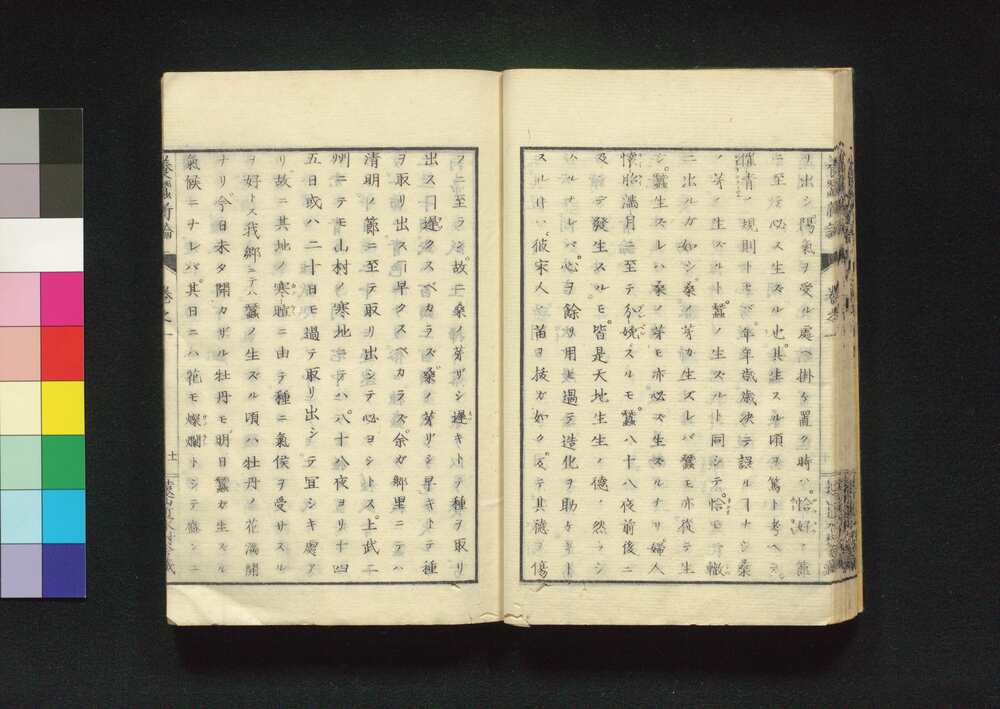 リ出シ陽氣ヲ受ル處ヘ掛ケ置ク時ハ恰好ノ節
ニ至リ必ス生ズル也其生スル頃ヲ篤ト考ヘテ
催青ノ規則トセバ年年歳歳決テ誤ルヿナシ桑
ノ芽ノ生ズルト蠶ノ生スルト同シテ恰モ合轍
ニ出ルガ如シ桑ノ芽カ生ズレバ蠶モ亦從テ生
シ蠶生スレハ桑ノ芽モ亦必ス生スルナリ婦人
懐胎滿月ニ至テ分娩スルモ蠶八十八夜前後ニ
及テ發生スルモ皆是天地生生ノ德ノ然ラシ
ムルナレバ心ヲ餘リ用ヒ過テ造化ヲ助ケント
スル片ハ彼宋人ノ苗ヲ抜ガ如ク却テ其德ヲ傷
フニ至ラン故ニ桑ノ芽ザシ遅キトテ種ヲ取リ
出スヿ遅クスベカラズ桑ノ芽ザシ早キトテ種
ヲ取リ出スヿ早クスベカラス余ガ郷里ニテハ
清明ノ節ニ至テ取リ出シテ必ヨシトス上武二
州ニテモ山村ノ寒地ニテハ八十八夜ヨリ十四
五日或ハ二十日モ過テ取リ出シテ宜シキ處ア
リ故ニ其地ノ寒暄ニ由テ種ニ氣候ヲ受サスル
ヲ好トス我郷ニテハ蠶ノ生ズル頃ハ牡丹ノ花滿開
ナリ今日未タ開カザル牡丹モ明日蠶ガ生スル
氣候ニナレバ其日ニハ花モ爛爛トシテ盛ンニ
養蠶新論
卷之一
十